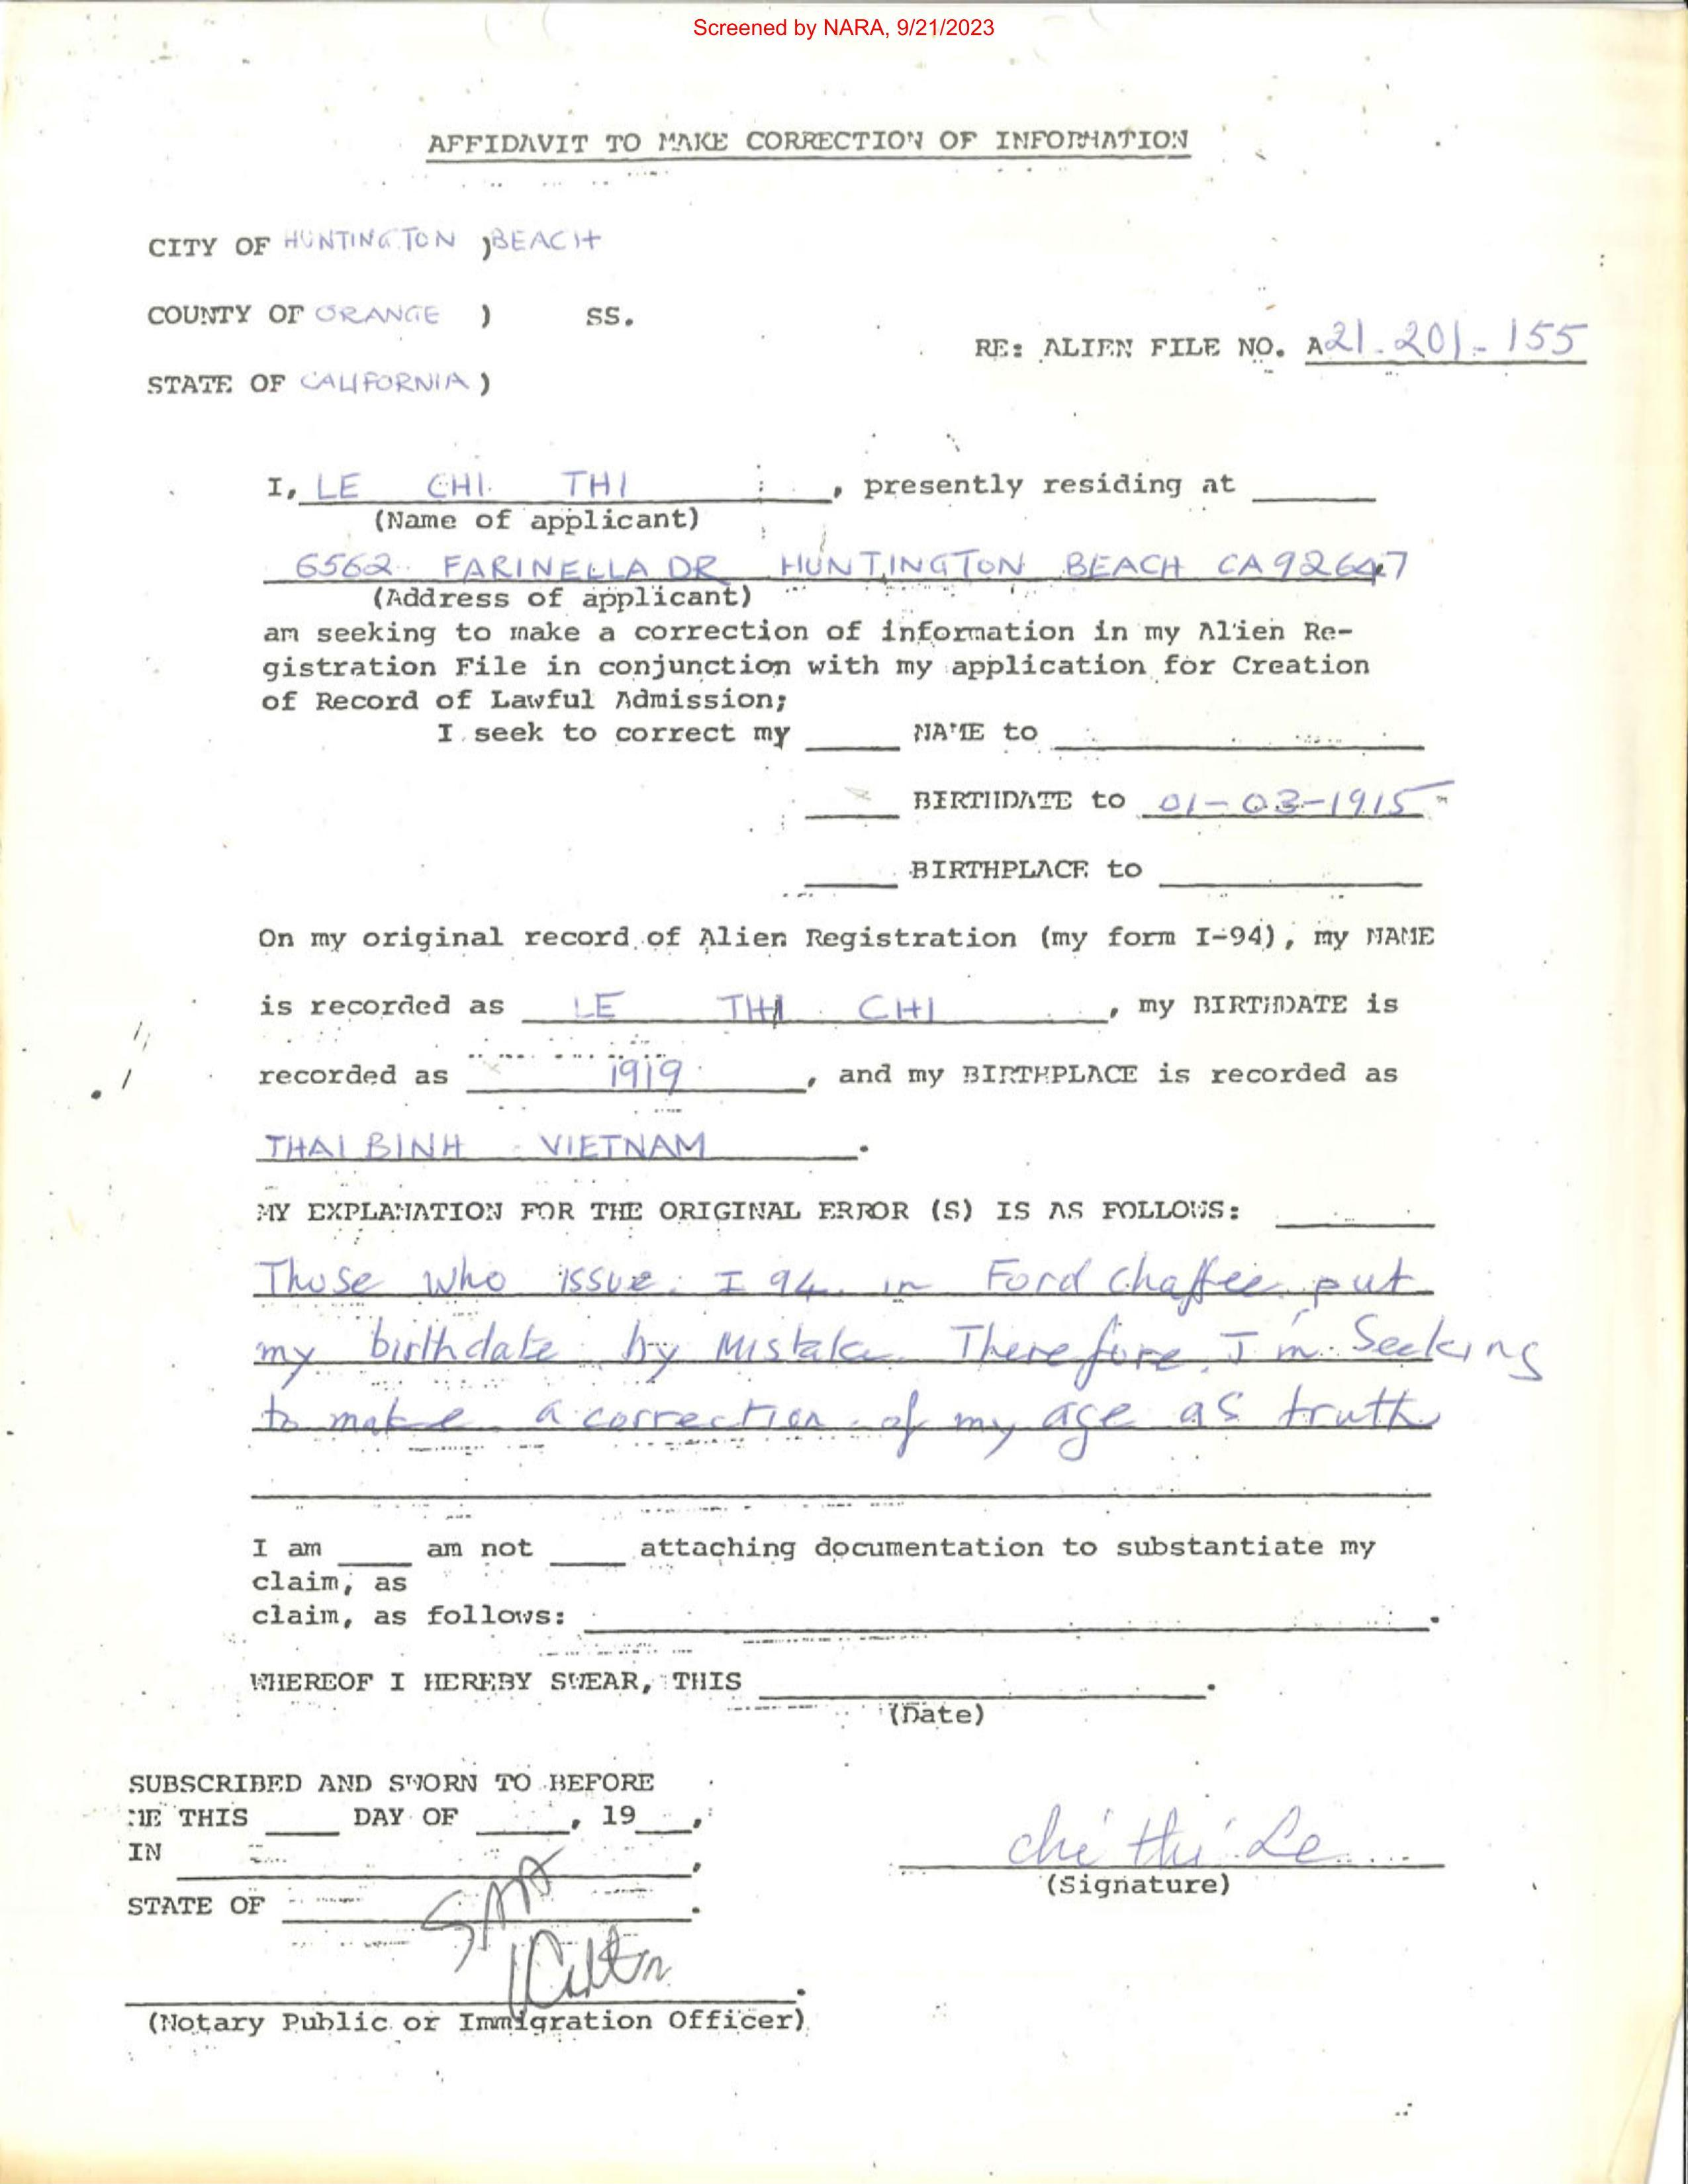 Screened by NARA, 9/21/2023
AFFIDAVIT TO MAKE CORRECTION OF INFORMATION
CITY OF HUNTINGTON ) BEACH
COUNTY OF ORANGE ) SS.
RE: ALIEN FILE NO. A21-201-155
STATE OF CALIFORNIA )
I, LE CHI THI , presently residing at
(Name of applicant)
6562 FARINELLA DR HUNTINGTON BEACH CA 92647
(Address of applicant)
am seeking to make a correction of information in my Alien Re-
gistration File in conjunction with my application for Creation
of Record of Lawful Admission;
I seek to correct my ____ NAME to ____
____ BIRTHDATE to 01-03-1915
____ BIRTHPLACE to ____
On my original record of Alien Registration (my form I-94), my NAME
is recorded as LE THI CHI , my BIRTHDATE is
recorded as 1919 , and my BIRTHPLACE is recorded as
THAI BINH - VIETNAM .
MY EXPLANATION FOR THE ORIGINAL ERROR (S) IS AS FOLLOWS:
Those who issue I 94 in Ford Chaffee put
my birthdate by Mistake. Therefore I'm Seeking
to make a correction of my age as truth
I am ____ am not ____ attaching documentation to substantiate my
claim, as
claim, as follows: ____.
WHEREOF I HEREBY SWEAR, THIS ____.
(Date)
SUBSCRIBED AND SWORN TO BEFORE
ME THIS ____ DAY OF ____, 19__,
IN ____,
chi thi Le
(Signature)
STATE OF ____.
(Notary Public or Immigration Officer)